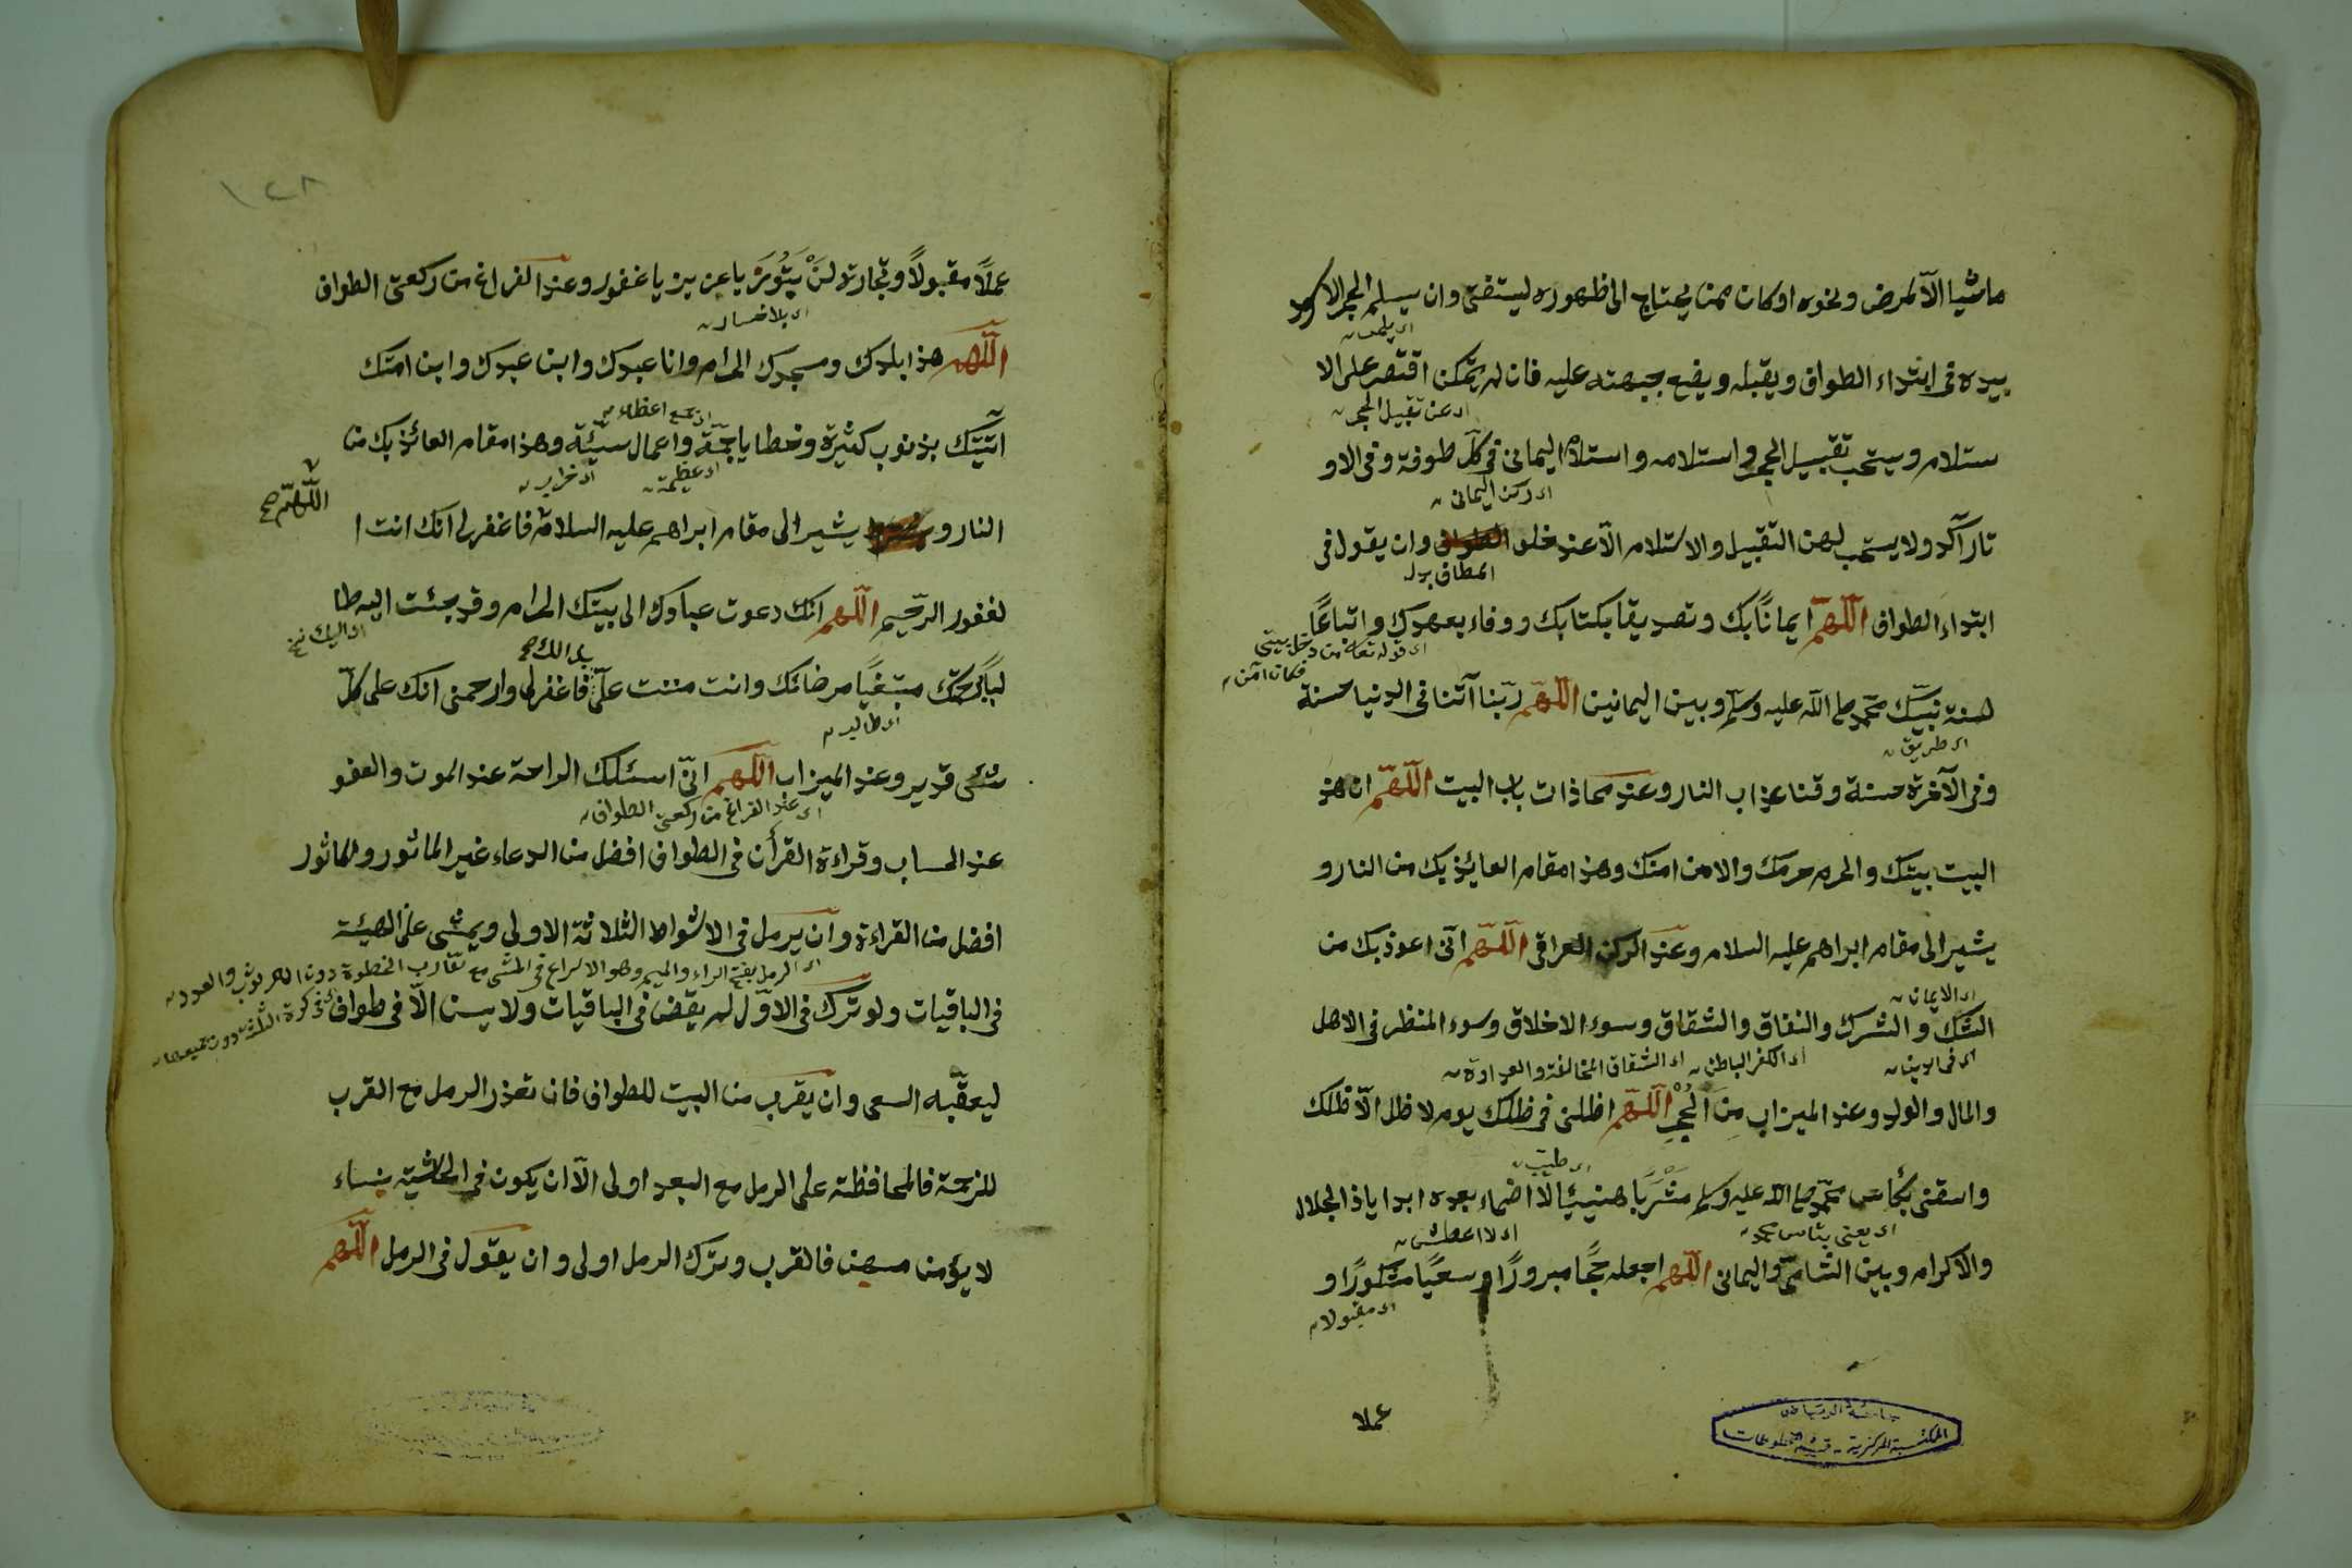 ماشيا الّا لمرض ونحوه او كان ممن يحتاج الى ظهوره ليستفتى وان يستلم الحجر الاسود
اى يلمس
بيده فى ابتداء الطواف ويقبله ويضع جبهته عليه فان لم يتمكن اقتصر على الا
اى عن تقبيل الحجر
ستلام ويستحب تقبيل الحجر واستلامه واستلام اليمانى فى كلّ طوفة وفى الاو
اى ركن اليمانى
تار آكد ولا يستحب لهن التقبيل والاستلام الّا عند خلو الطواف وان يقول فى
المطاف بدل
ابتداء الطواف اللّهمّ ايمانًا بك وتصديقا بكتابك ووفاء بعهدك واتباعًا
اى قوله تعالى من دخل بيتى
فكان آمن
لسنة نبيّك محمّد صلى الله عليه وسلم وبين اليمانين اللّهمّ ربّنا آتنا فى الدنيا حسنة
اى طريق
وفى الآخرة حسنة وقنا عذاب النار وعند محاذات باب البيت اللّهمّ ان هذ
البيت بيتك والحرم حرمك والامن امنك وهذا مقام العايذ بك من النار و
يشير الى مقام ابراهم عليه السلام وعند الركن العراقى اللّهمّ انّى اعوذ بك من
اى الايمان
الشّك والشرك والنفاق والشقاق وسوء الاخلاق وسوء المنظر فى الاهل
اى فى الدين
اى الكفر الباطن اى الشقاق المخالفة والعداوة
والمال والولد وعند الميزاب مِنَ الْحِجْرِ اللّهمّ اظلنى فى ظلك يوم لا ظل الّا ظلك
اى طيب
واسقنى بكاس محمّد صلى الله عليه وسلم مَشْرَبًا هنيئا لا اضماء بعده ابدا ياذ الجلال
اى لا اعطش
والاكرام وبين الشامىّ واليمانى اللّهمّ اجعله حجًّا مبرورًا وسعيًا مشكورًا و
اى مقبولا
عملا
جامعة الرياض
المكتبة المركزية - قسم المخطوطات
١٢٨
عملًا مقبولًا وتجارة لنْ تَبُورَ يا عزيز يا غفور وعند الفراغ من ركعتى الطواف
اى بلا خسار
اللّهمّ هذا بلدك ومسجدك الحرام وانا عبدك وابن عبدك وابن امتك
اتيتك بذنوب كثيرة وخطايا جمّة واعمال سيّئة وهذا مقام العائذ بك من
اى عظيمة
اللّهمّ صح
النار و يشير الى مقام ابراهم عليه السلام فاغفر لى انك انت ا
لغفور الرحيم اللّهمّ انك دعوت عبادك الى بيتك الحرام وقد جئت اليه طا
اى اليك نسخ
لبًا رحمتك مبتغيًا مرضاتك وانت مننت علىّ فاغفر لى وارحمنى انك على كلّ
اى طالب
شئ قدير وعند الميزاب اللّهمّ انّى اسئلك الراحة عند الموت والعفو
اى عند الفراغ من ركعتى الطواف
عند الحساب وقراءة القرآن فى الطواف افضل من الدعاء غير الماثور والماثور
افضل من القراءة وان يرمل فى الاشواط الثلاثة الاولى ويمشى على الهيئة
اى الرمل بفتح الراء والميم وهو الاسراع فى المشى مع تقارب الخطوة دون الوثوب والعدو
فى الباقيات ولو ترك فى الاوّل لم يقض فى الباقيات ولا يسن الّا فى طواف
ليعقّبه السعى وان يقرب من البيت للطواف فان تعذر الرمل مع القرب
للزحمة فالمحافظة على الرمل مع البعد اولى الّا ان يكون فى الحاشية نساء
لا يؤمن مسهن فالقرب وترك الرمل اولى وان يقول فى الرمل اللّهمّ